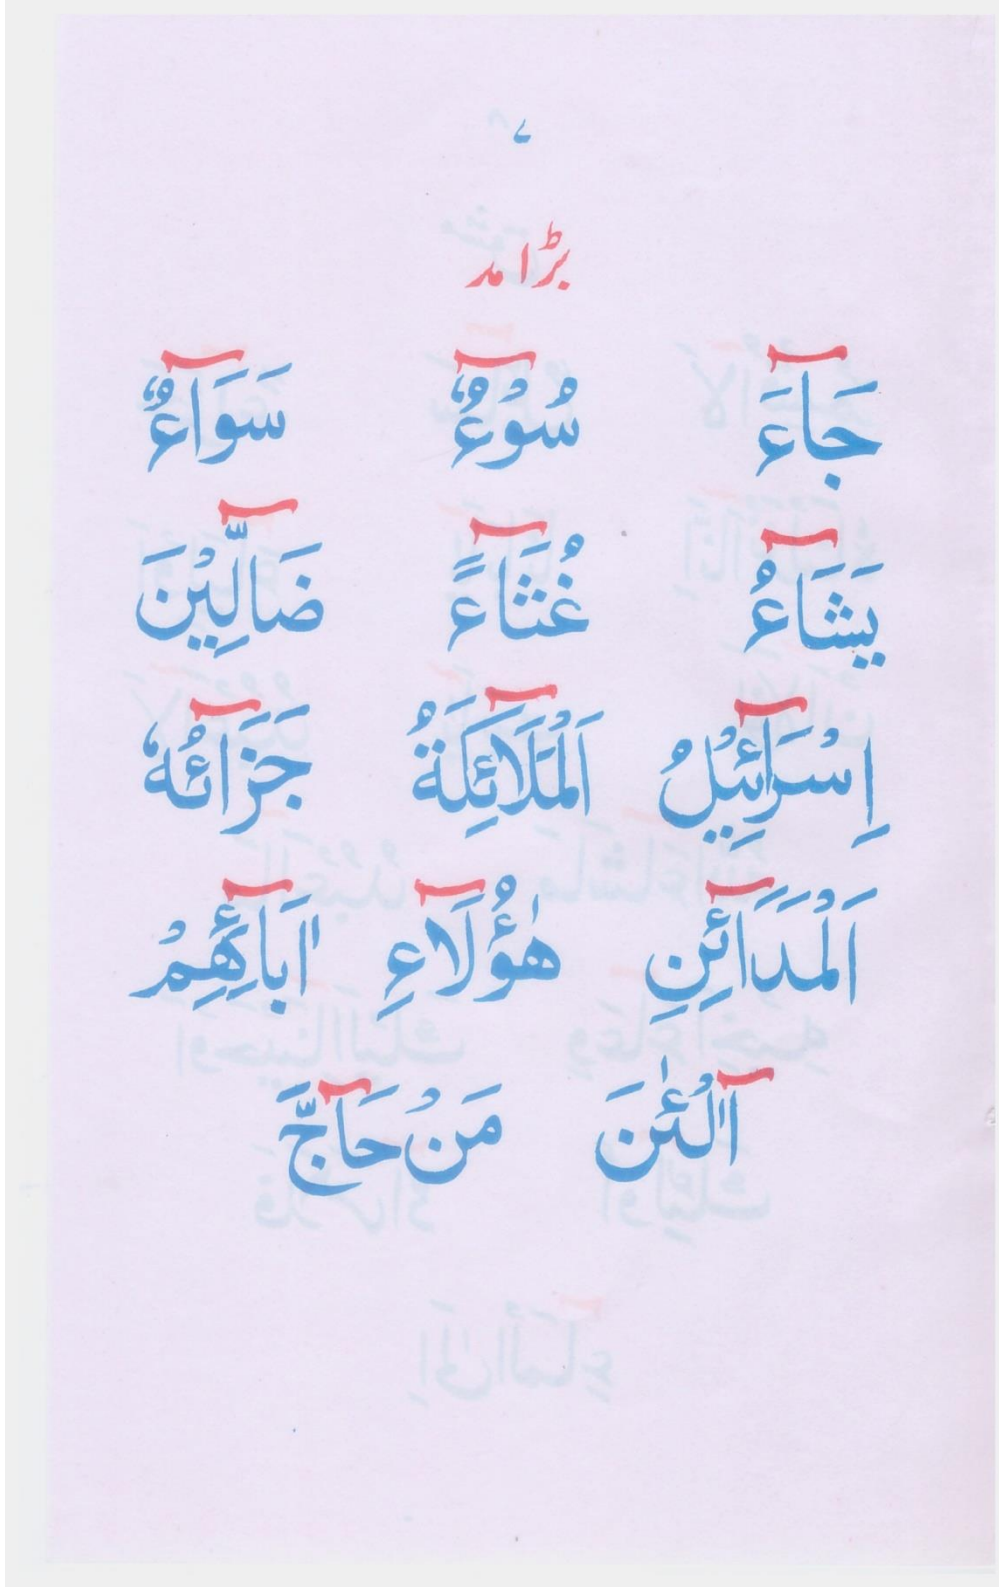 ۷
بڑا مد
جَآءَ سُوْٓءٌ سَوَآءٌ
يَشَآءُ غُثَآءً ضَآلِّيْنَ
اِسْرَآئِيْلُ اَلْمَلَآئِكَةُ جَزَآئُهٗ
اَلْمَدَآئِنِ هٰٓؤُلَآءِ اٰبَآئِهِمْ
آلْئٰنَ مَنْ حَآجَّ